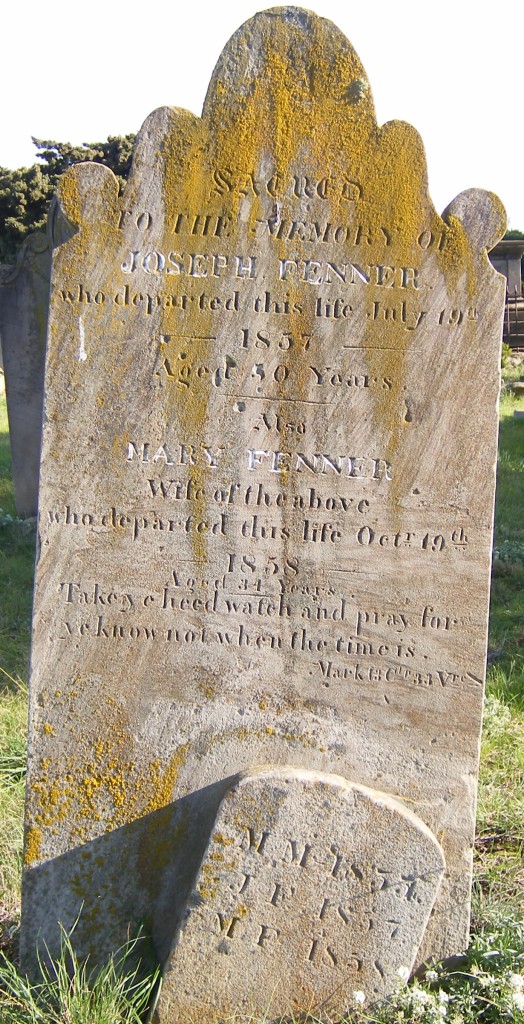 SACRED
TO THE MEMORY OF
JOSEPH FENNER
who departed this life July 19th
1857
Aged 50 Years.
Also
MARY FENNER
Wife of the above
who departed this life Octr. 19th
1858
Aged 34 Years.
Take ye heed watch and pray for
ye know not when the time is.
Mark 13 Chr 33 Vrs
M.M. 1854.
J.F. 1857.
M.F. 1858.